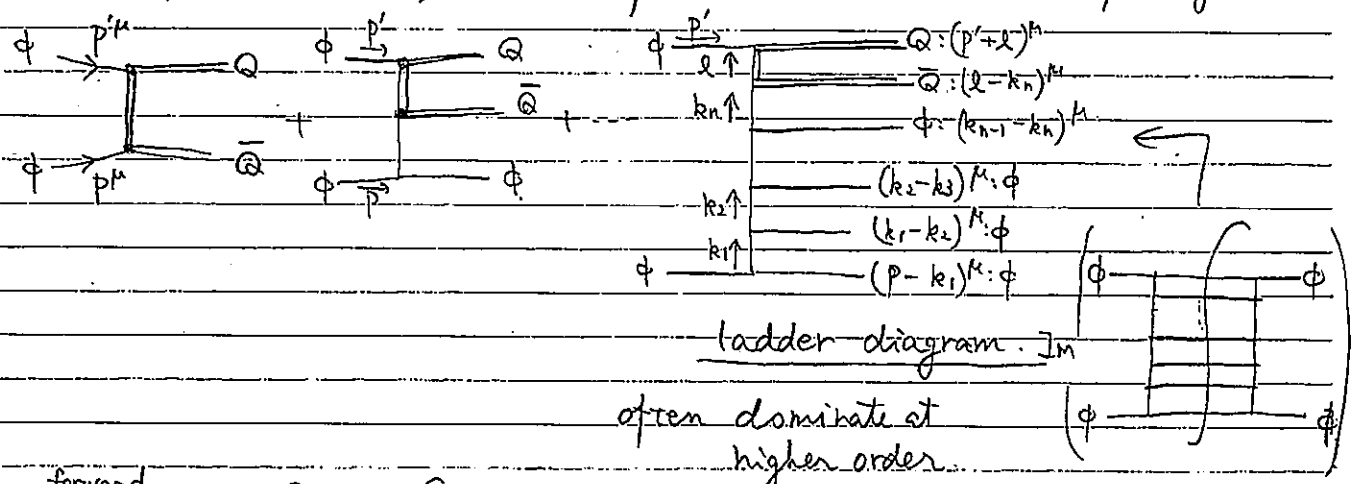 ϕ p'^μ Q
ϕ p^μ Q̄
+
ϕ p' Q
Q̄
ϕ p ϕ
+ ---
ϕ p' Q:(p'+l)^μ
l↑ Q̄:(l-kn)^μ
kn↑ ϕ:(kn-1-kn)^μ
k2↑ (k2-k3)^μ:ϕ
k1↑ (k1-k2)^μ:ϕ
ϕ (p-k1)^μ:ϕ
ladder diagram. Im
ϕ ϕ
ϕ ϕ
often dominate at
higher order.
forward